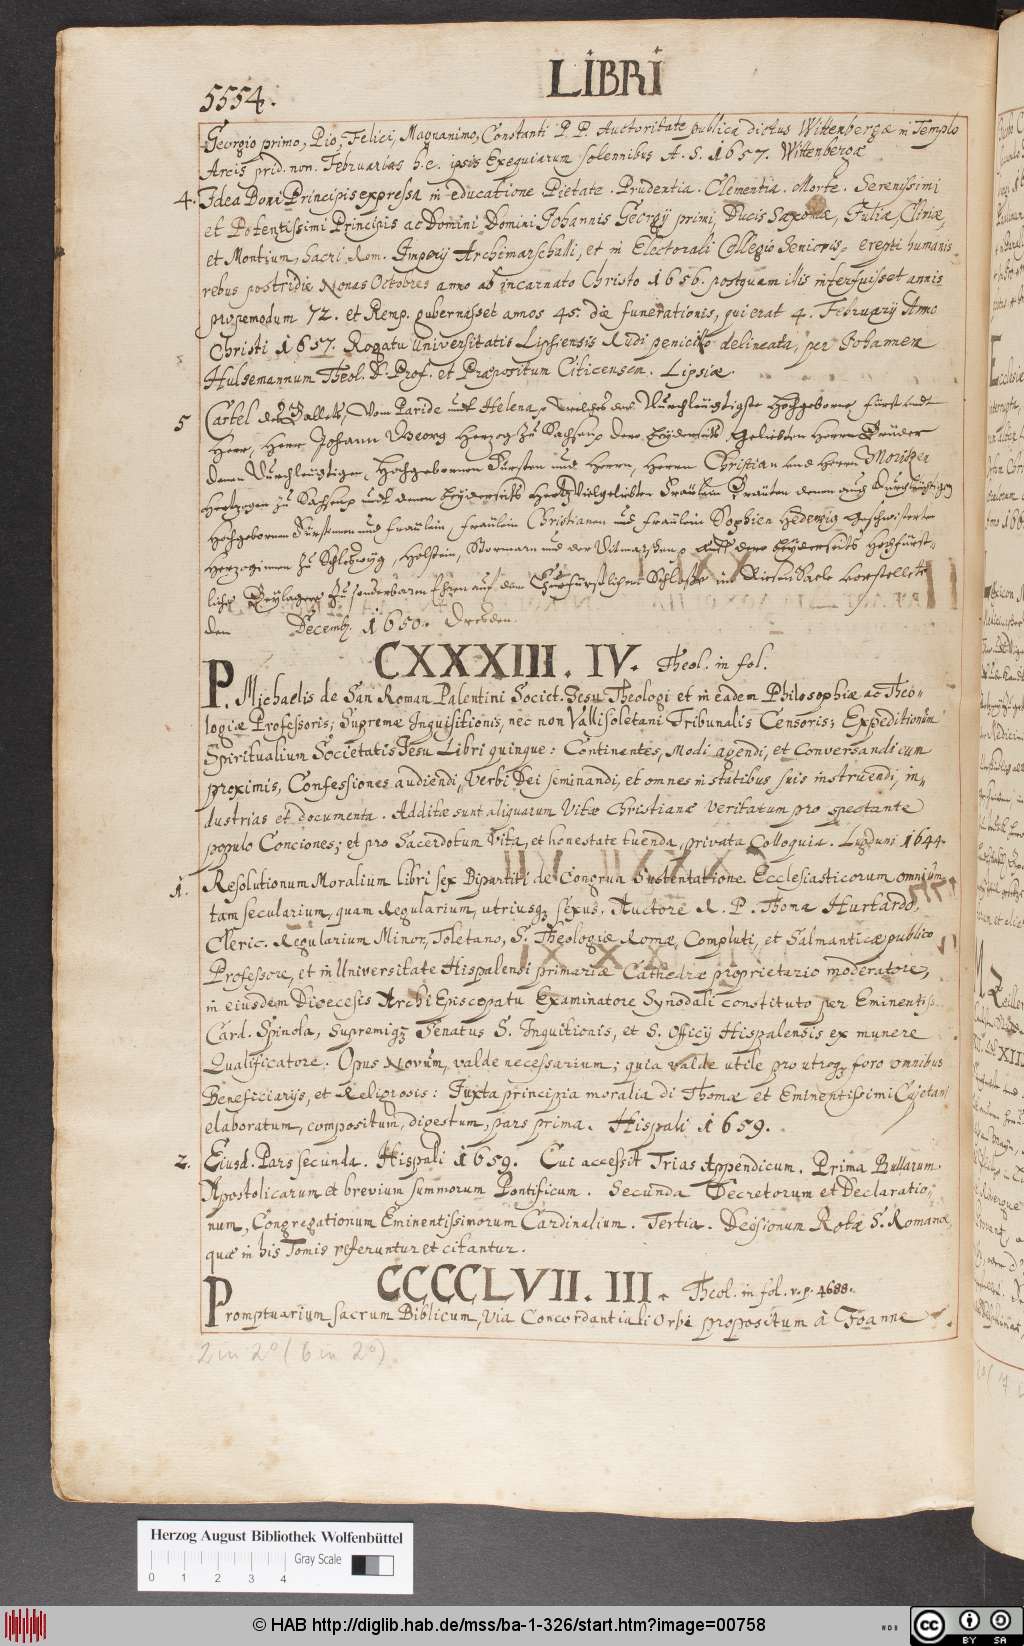 5554.
LIBRI
Georgio primo, Pio, Felici, Magnanimo, Constanti P. P. Auctoritate publica dictus Wittenbergæ in Templo
Arcis prid. non. Februarias h. e. ipsis Exequiarum solennibus A. S. 1657. Wittenbergæ
4. Idea Boni Principis expressa in educatione Pietate. Prudentia. Clementia. Morte. Serenissimi
et Potentissimi Principis ac Domini Domini Johannis Georgy primi, Ducis Saxoniæ, Juliæ, Cliviæ,
et Montium, Sacri Rom. Impery Archimarschalli, et in Electorali Collegio Senioris, erepti humanis
rebus postridie Nonas Octobres anno ab incarnato Christo 1656. postquam illis interfuisset annis
propemodum 72. et Remp. gubernasset annos 45. die funerationis, qui erat 4. February Anno
Christi 1657. Rogatu Universitatis Lipsiensis Rudi penicillo delineata, per Johannem
Hulsemannum Theol. D. Prof. et Præpositum Citicensem. Lipsiæ.
5 Cartel deß Ballets, Vom Paride undt Helena, welches der Durchleüchtigste Hochgeborne Fürst undt
Herr, Herr Johann Georg Herzog zu Sachsen, dero beyderseits geliebten Herren Brüder
denen Durchleüchtigen, Hochgebornen Fürsten und Herrn, Herrn Christian und Herrn Moritzen
Hertzogen zu Sachsen, undt denen beyderseits Hertzvielgeliebten Fräulein Bräuten denen auch Durchleüchtigen
Hochgebornen Fürstinnen und Fräulein, Fräulein Christianen und Fräulein Sophien Hedewig Geschwisterten
Herzoginnen zu Schleßwyg, Holstein, Stormarn und der Ditmarschen, auff dero beyderseits Hochfürst-
liches Beylager zu sonderbaren Ehren auf dem Churfürstlichen Schlosse im Riesen Saale vorstellete
den Decemb. 1650. Dresden.
CXXXIII. IV. Theol. in fol.
P. Michaelis de San Roman Palentini Societ. Jesu Theologi et in eadem Philosophiæ ac Theo-
logiæ Professoris; Supremæ Inquisitionis, nec non Vallisoletani Tribunalis Censoris; Expeditionum
Spiritualium Societatis Jesu Libri quinque: Continentes, Modi agendi, et Conversandi cum
proximis, Confessiones audiendi, Verbi Dei seminandi, et omnes in statibus suis instruendi, in-
dustrias et documenta. Additæ sunt aliquarum Vitæ Christianæ Veritatum pro spectante
populo Conciones; et pro Sacerdotum Vita, et honestate tuenda, privata Colloquia. Lugduni 1644.
1. Resolutionum Moralium libri sex Bipartiti de Congrua Sustentatione Ecclesiasticorum omnium
tam secularium, quam Regularium, utriusq; sexus. Auctore R. P. Thoma Hurtardo,
Cleric. Regularium Minor, Toletano, S. Theologiæ Romæ, Compluti, et Salmanticæ publico
Professore, et in Universitate Hispalensi primariæ Cathedræ proprietario moderatore,
in eiusdem Dioecesis Archi Episcopatu Examinatore Synodali constituto per Eminentiss.
Card. Spinola, Supremiq; Senatus S. Inquitionis, et S. Officij Hispalensis ex munere
Qualificatore. Opus Novum, valde necessarium; quia valde utile pro utroq; foro omnibus
Beneficiarijs, et Religiosis: Juxta principia moralia di Thomæ et Eminentissimi Cajetani
elaboratum, compositum, digestum, pars prima. Hispali 1659.
2. Eiusd. Pars secunda. Hispali 1659. Cui accessit Trias Appendicum. Prima Bullarum
Apostolicarum et brevium summorum Pontificum. Secunda Decretorum et Declaratio-
num, Congregationum Eminentissimorum Cardinalium. Tertia. Decisionum Rotæ S. Romanæ
quæ in his Tomis referuntur et citantur.
CCCCLVII. III. Theol. in fol. v. p. 4688.
Promptuarium sacrum Biblicum, Via Concordantiali Orbi propositum à Joanne
2 in 2° (6 in 2°)
Herzog August Bibliothek Wolfenbüttel
Gray Scale
0 1 2 3 4
© HAB http://diglib.hab.de/mss/ba-1-326/start.htm?image=00758
WDB
CC BY SA